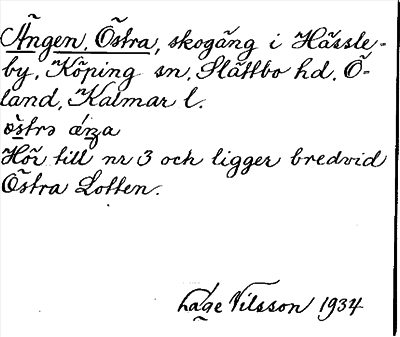 Ängen, Östra, skogäng i Hässle-
by, Köping sn, Slättbo hd. Ö-
land, Kalmar l.
östrə
Hör till nr 3 och ligger bredvid
Östra Lotten.
Låge Nilsson 1934